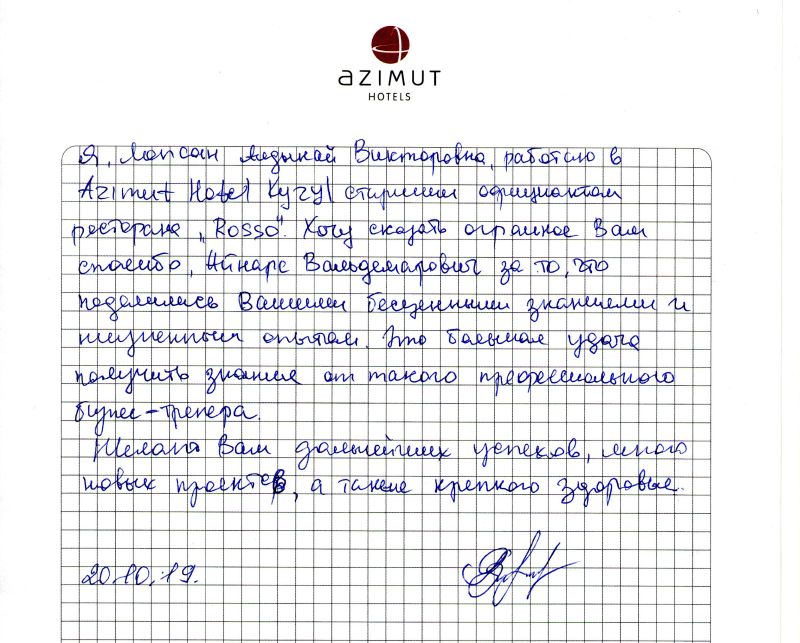 AZIMUT
HOTELS
Я, Лопсан Алдынай Викторовна, работаю в
Azimut Hotel Кызыл старшим официантом
ресторана „Rosso“. Хочу сказать огромное Вам
спасибо, Айнарс Вальдемарович за то, что
поделились Вашими бесценными знаниями и
жизненным опытом. Это большая удача
получить знания от такого профессионального
бизнес-тренера.
Желаю Вам дальнейших успехов, много
новых проектов, а также крепкого здоровья.
20.10.19.